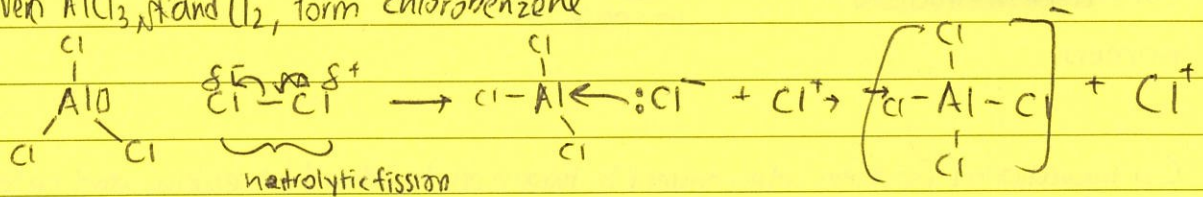 ven AlCl3, and Cl2, form chlorobenzene
Cl Cl Cl
Al δ- δ+ Cl-Cl → Cl-Al ← :Cl- + Cl+ → Cl-Al-Cl - + Cl+
Cl Cl Cl Cl
hetrolytic fission